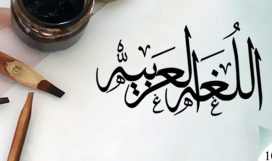 اللُغَة العربية